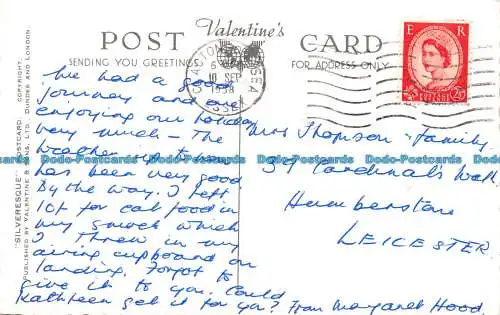 POST Valentine's CARD
SENDING YOU GREETINGS
FOR ADDRESS ONLY
"SILVERESQUE" POSTCARD. COPYRIGHT.
PUBLISHED BY VALENTINE & SONS, LTD. DUNDEE AND LONDON.
CLACTON SEA
10 SEP
1958
E R
POSTAGE
2½D
We had a good
journey and are
enjoying our holiday
very much – The
weather up to now
has been very good
By the way. I left
10/- for cat food in
my smock which
I threw in my
airing cupboard on
landing. Forgot to
give it to you. Could
Kathleen get it for you? From Margaret Hood.
Mrs Thompson & Family
357 Cardinals Walk
Humberstone
LEICESTER
Dodo-Postcards Dodo-Postcards Dodo-Postcards Dodo-Postcards